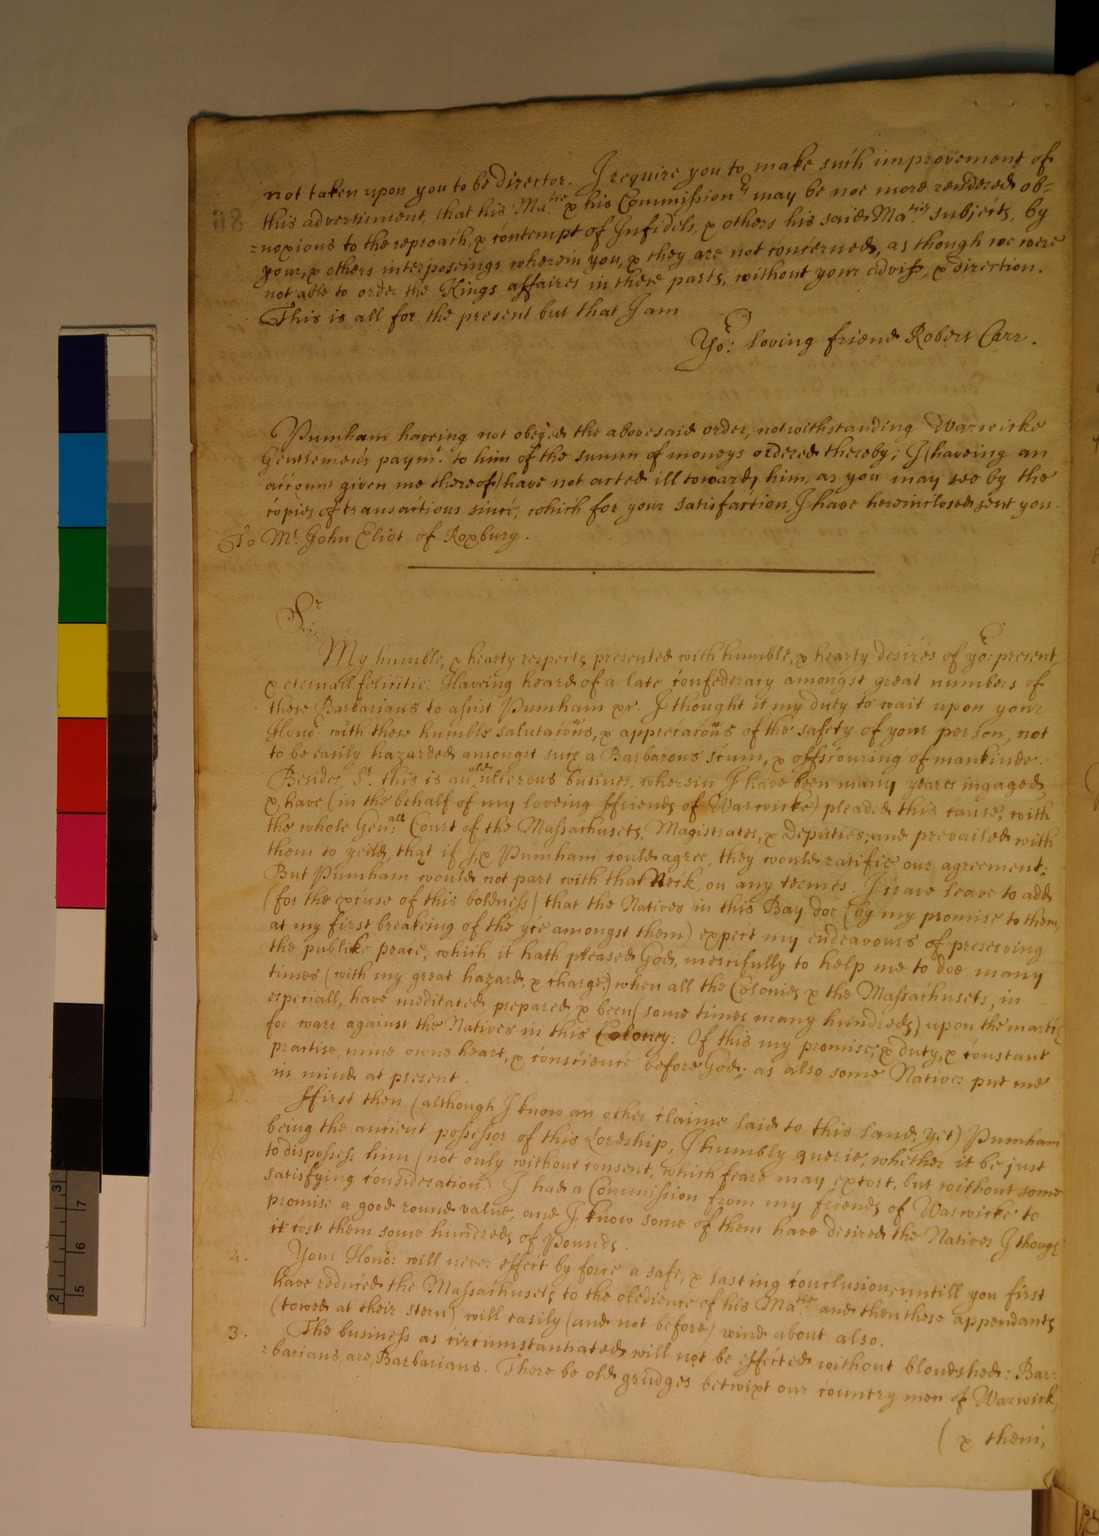 not taken upon you to be director. I require you to make such improvement of
this advertisment, that his Ma:tie & his Commission:rs may be noe more rendered ob=
=noxious to the reproach, & contempt of Infidels, & others his said Ma:ties subjects, by
your, & others interposeings wherein you, & they are not concerned, as though we were
not able to order the Kings affaires in these parts, without your advise, & direction.
This is all for the present but that I am
Yo:r loving friend Robert Carr.
Pumham haveing not obeyed the abovesaid order, notwithstanding Warwicke
Gentlemens paym:t to him of the summ of moneys ordered thereby; I (haveing an
account given me thereof) have not acted ill towards him, as you may see by the
copies of transactions since, which for your satisfaction, I have hereinclosed sent you.
To Mr. John Eliot of Roxbury.
Sr
My humble, & hearty respects presented with humble, & hearty desires of yo:r present,
& eternall felicitie: Haveing heard of a late confederacy amongst great numbers of
these Barbarians to assist Pumham &c. I thought it my duty to wait upon your
Hono: with these humble salutations, & appreciations of the safety of your person, not
to be easily hazarded amongst such a Barbarous scum, & offscouring of mankinde.
Besides Sr. this is an old ulcerous busines, wherein I have been many yeares ingaged,
& have (in the behalf of my loveing ffriends of Warwicke) pleaded this cause, with
the whole Gen:all Court of the Massachusets, Magistrates, & Deputies; and prevailed with
them to yeild, that if Pumham would agree, they would ratifie our agreement:
But Pumham would not part with that Neck, on any termes. I crave leave to add
(for the excuse of this boldness) that the Natives in this Bay doe (by my promise to them,
at my first breakeing of the yce amongst them) expect my endeavours of preserving
the publike peace, which it hath pleased God, mercifully to help me to doe many
times (with my great hazard, & charge,) when all the Colonies & the Massachusets, in
especiall, have meditated, prepared, & been (some times many hundreds) upon the march
for warr against the Natives in this Colony: Of this my promise, & duty, & constant
practise mine owne heart, & conscience before God, as also some Natives put me
in mind at present.
1. ffirst then (although I know an other claime laid to this land, yet) Pumham
being the ancient possessor of this Lordship, I humbly querie, whether it be just
to dispossess him (not only without consent, which feare may extort, but without some
satisfying consideration) I had a Commission from my friends of Warwicke to
promise a good round value, and I know some of them have desired the Natives though
it cost them some hundreds of Pounds.
2. Your Hono: will never effect by force a safe, & lasting conclusion, untill you first
have reduced the Massachusets to the obedience of his Ma:tie and then these appendants
(towed at their stern) will easily (and not before) wind about also.
3. The business as circumstantiated will not be effected without bloudshed: Bar=
=barians are Barbarians. There be old grudges betwixt our country men of Warwick,
(& them,